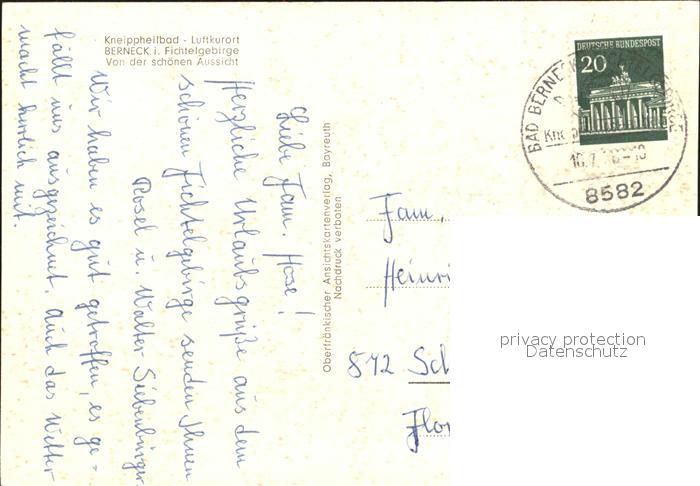 Kneippheilbad - Luftkurort
BERNECK i. Fichtelgebirge
Von der schönen Aussicht
Liebe Fam. Hose!
Herzliche Urlaubsgrüße aus dem
schönen Fichtelgebirge senden Ihnen
Rosel u. Walter Siebenbürger
Wir haben es gut getroffen, es ge=
fällt uns ausgezeichnet. Auch das Wetter
macht herrlich mit.
Oberfränkischer Ansichtskartenverlag, Bayreuth
Nachdruck verboten
DEUTSCHE BUNDESPOST
20
BAD BERNECK
8582
Fam.
Heinri
872 Sch
Flor
privacy protection
Datenschutz